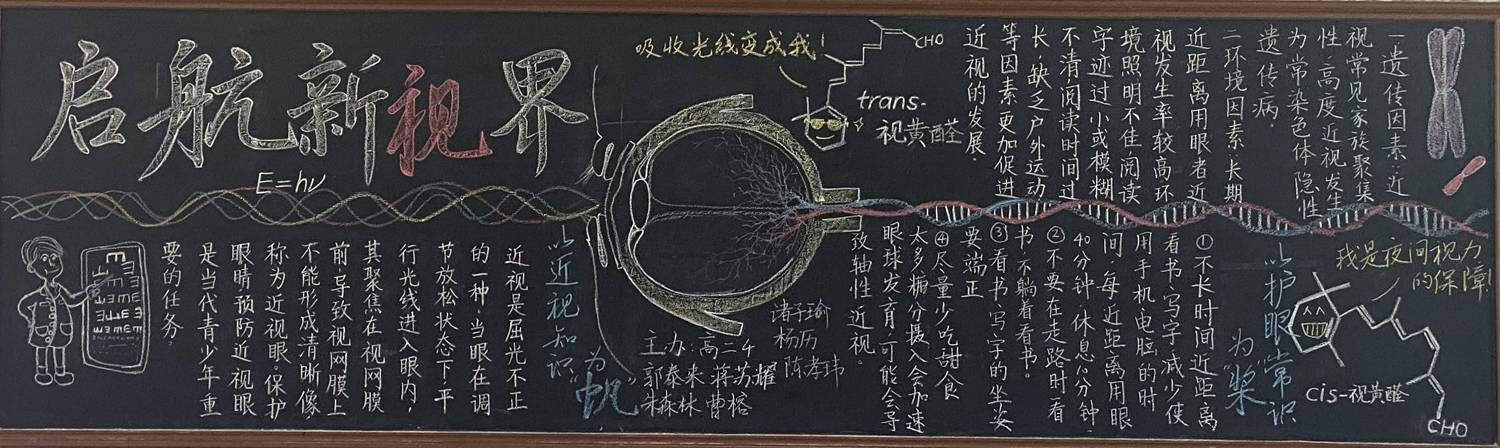 启航新视界
E=hν
吸收光线变成我!
CHO
trans-
视黄醛
一遗传因素:近
视常见家族聚集
性,高度近视发生
为常染色体隐性
遗传病。
二环境因素:长期
近距离用眼者近
视发生率较高,环
境照明不住,阅读
字迹过小或模糊
不清,阅读时间过
长,缺乏户外运动
等因素更加促进
近视的发展.
以近视知识
为"帆"
近视是屈光不正
的一种,当眼在调
节放松状态下,平
行光线进入眼内,
其聚焦在视网膜
前,导致视网膜上
不能形成清晰像
称为近视眼。保护
眼睛预防近视眼
是当代青少年重
要的任务。
以护眼常识
为"桨"
①不长时间近距离
看书、写字,减少使
用手机、电脑的时
间,每近距离用眼
40分钟,休息10分钟。
②不要在走路时看
书,不躺着看书。
③看书写字的坐姿
要端正
④尽量少吃甜食
太多糖分摄入会加速
眼球发育,可能会导
致轴性近视.
我是夜间视力
的保障!
cis-视黄醛
CHO
主办:高二4
郭泰来 蒋苏耀
朱森林 曹榕
杨历
陈孝玮